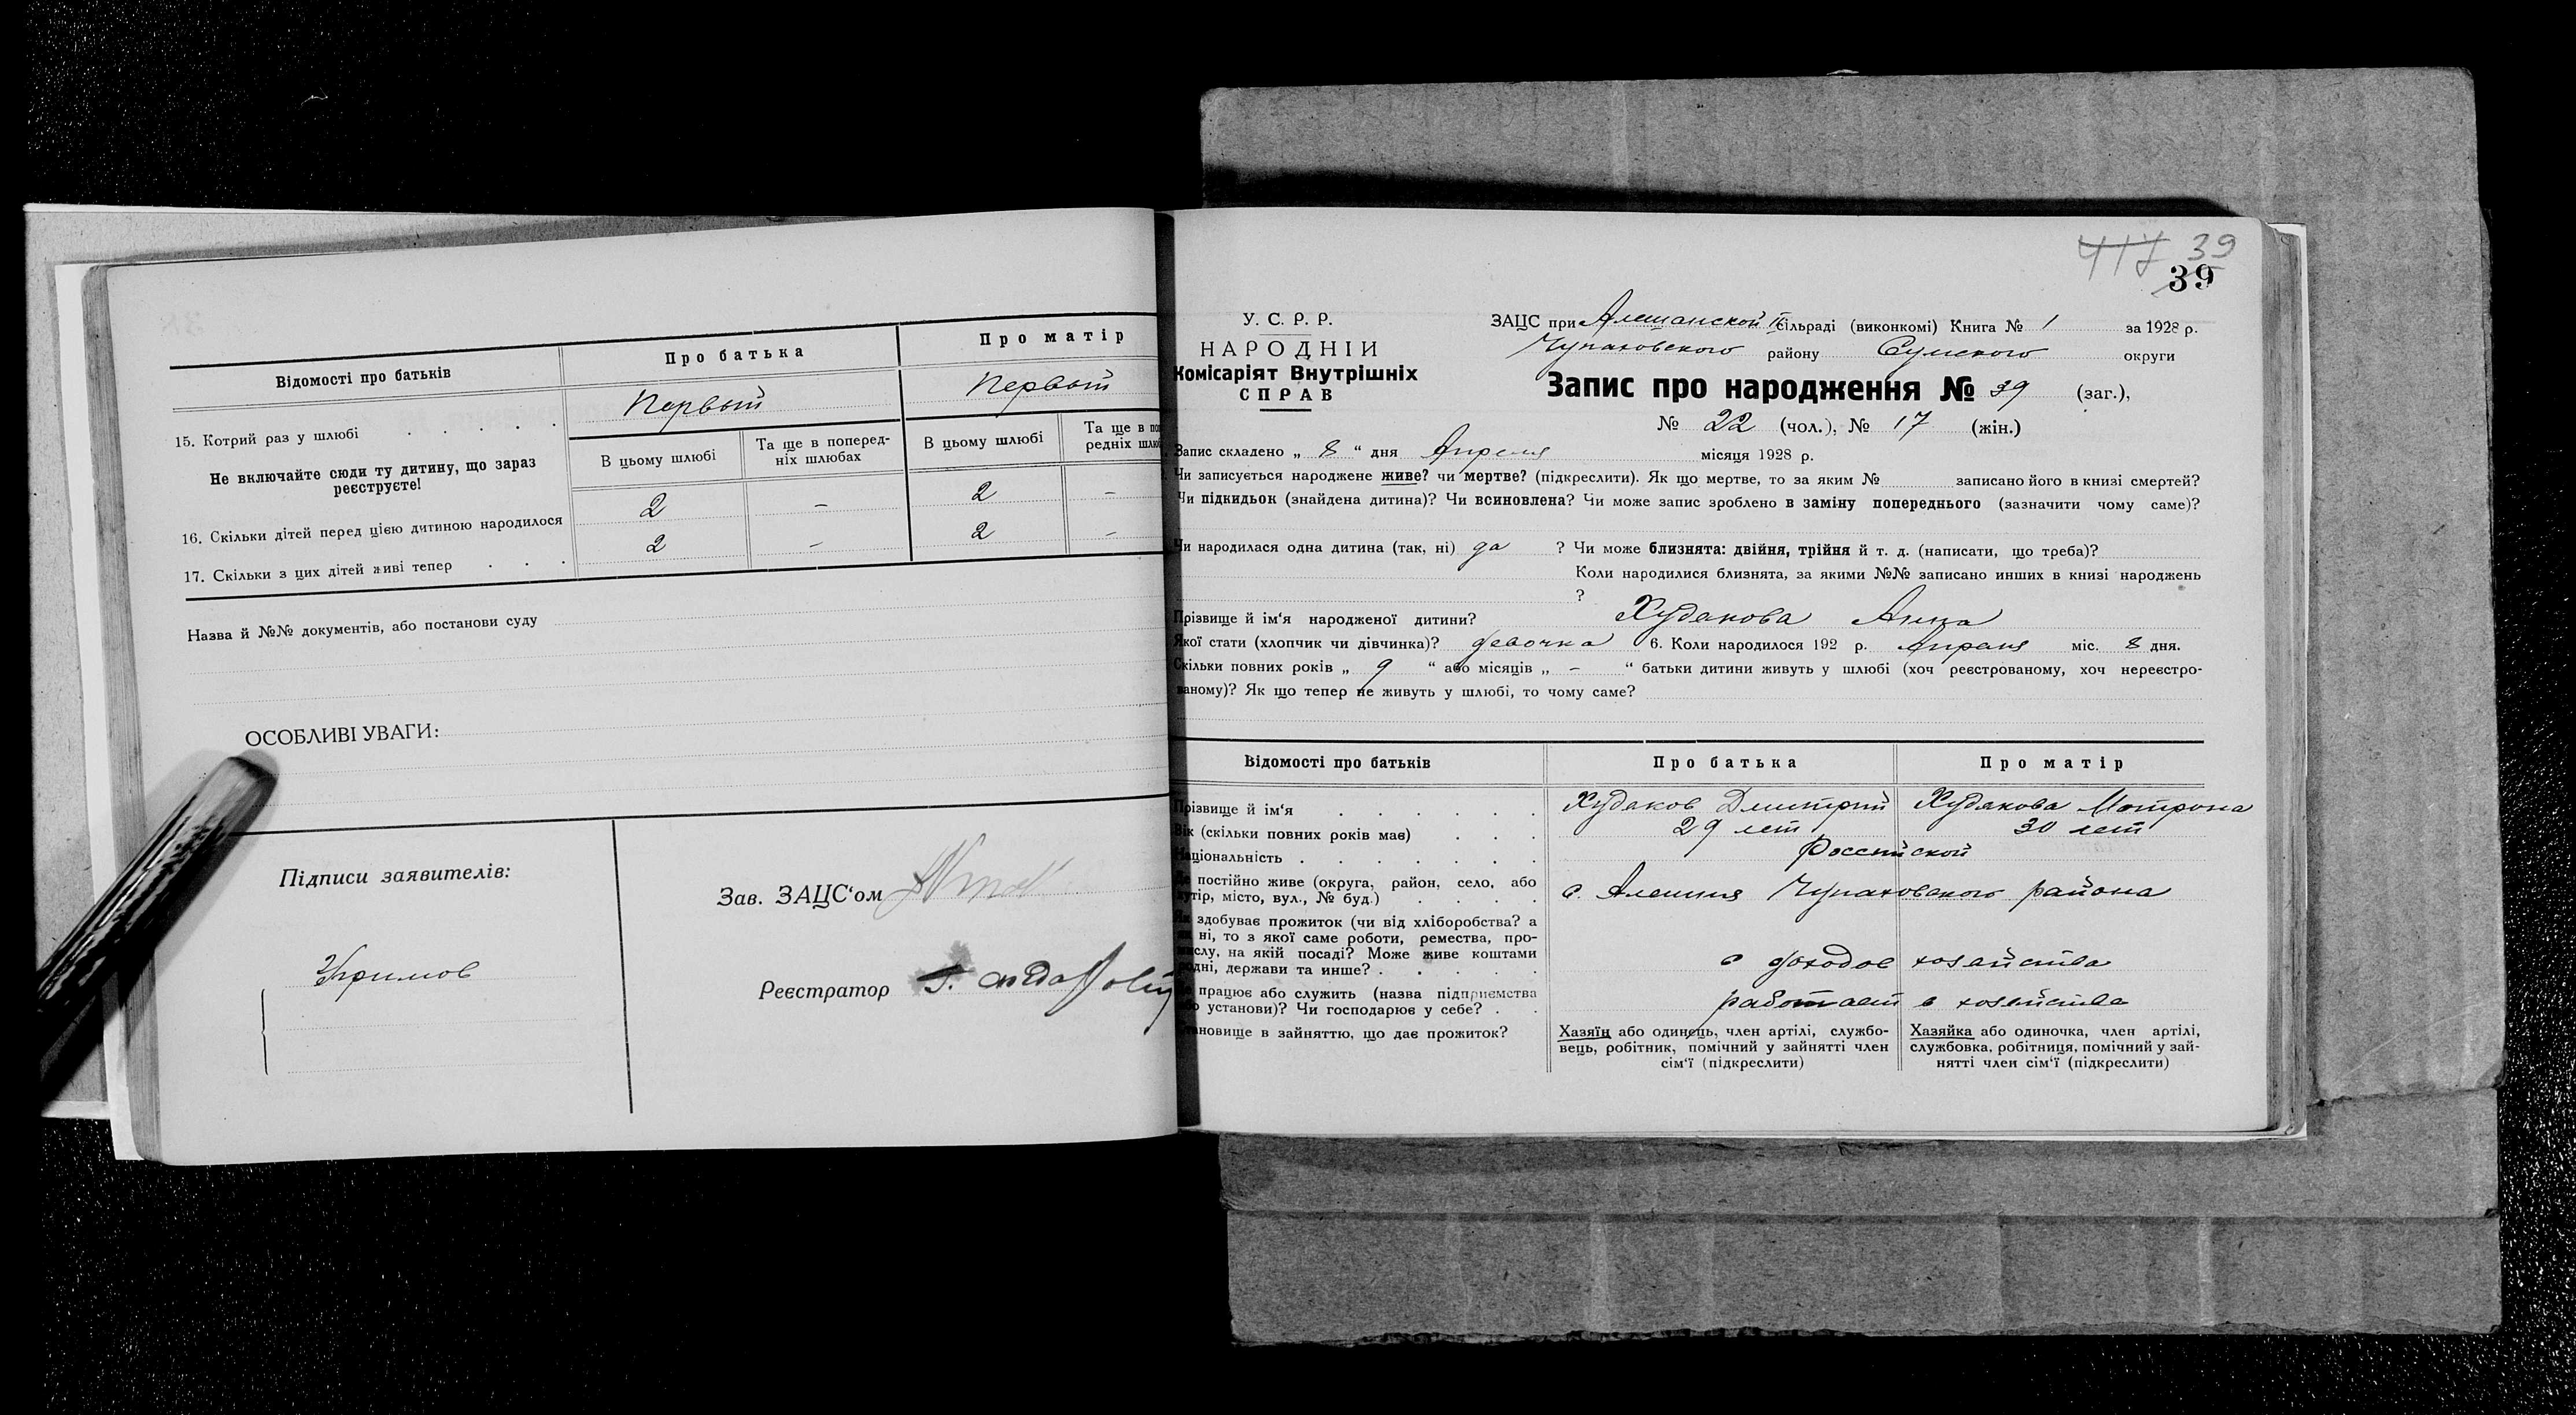 Відомості про батьків
Про батька
Про матір
15. Котрий раз у шлюбі . . . . .
Первый
Первый
Не включайте сюди ту дитину, що зараз
реєструєте!
В цьому шлюбі
Та ще в поперед-
ніх шлюбах
В цьому шлюбі
Та ще в по
редніх шлю
16. Скільки дітей перед цією дитиною народилося
2 – 2 –
17. Скільки з цих дітей живі тепер . . .
2 – 2 –
Назва й №№ документів, або постанови суду
ОСОБЛИВІ УВАГИ:
Підписи заявителів:
Зав. ЗАЦС'ом
Реєстратор
417 39
39
У. С. Р. Р.
НАРОДНІЙ
Комісаріят Внутрішніх
СПРАВ
ЗАЦС при Алешанской II сільраді (виконкомі) Книга № 1 за 1928 р.
Чупаховского району Сумского округи
Запис про народження № 39 (заг.),
№ 22 (чол.), № 17 (жін.)
Запис складено „ 8 “ дня Апреля місяця 1928 р.
Чи записується народжене живе? чи мертве? (підкреслити). Як що мертве, то за яким № записано його в книзі смертей?
Чи підкидьок (знайдена дитина)? Чи всиновлена? Чи може запис зроблено в заміну попереднього (зазначити чому саме)?
Чи народилася одна дитина (так, ні) да ? Чи може близнята: двійня, трійня й т. д. (написати, що треба)?
Коли народилися близнята, за якими №№ записано инших в книзі народжень
?
Прізвище й ім'я народженої дитини? Худакова Анна
Якої стати (хлопчик чи дівчинка)? девочка 6. Коли народилося 192 р. Апреля міс. 8 дня.
Скільки повних років „ 9 “ або місяців „ – “ батьки дитини живуть у шлюбі (хоч реєстрованому, хоч нереєстро-
ваному)? Як що тепер не живуть у шлюбі, то чому саме?
Відомості про батьків
Про батька
Про матір
Прізвище й ім'я . . . . . .
Худаков Дмитрий
Худакова Матрона
Вік (скільки повних років має) . . .
29 лет
30 лет
Національність . . . . . . .
Российской
постійно живе (округа, район, село, або
хутір, місто, вул., № буд.) . . . .
с. Алешня Чупаховского района
здобуває прожиток (чи від хліборобства? а
ні, то з якої саме роботи, ремества, про-
мислу, на якій посаді? Може живе коштами
родні, держави та инше? . . . . .
с доходов хозяйства
працює або служить (назва підприємства
установи)? Чи господарює у себе? . .
работает в хозяйства
становище в зайняттю, що дає прожиток?
Хазяїн або одинець, член артілі, службо-
вець, робітник, помічний у зайнятті член
сім'ї (підкреслити)
Хазяйка або одиночка, член артілі,
службовка, робітниця, помічний у зай-
нятті член сім'ї (підкреслити)